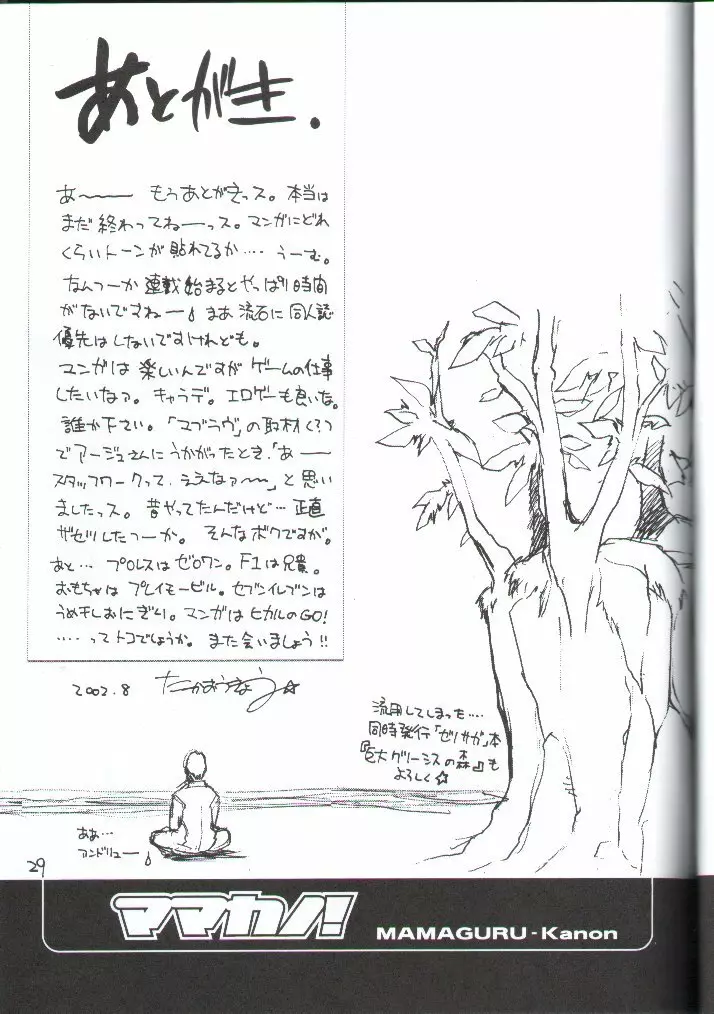 あとがき.
あ〜〜 もうあとがきっス。本当は
まだ終わってねーっス。マンガにどれ
くらいトーンが貼れてるか…. うーむ。
なんつーか連載始まるとやっぱり時間
がないですねー まあ流石に同人誌
優先はしないですけれども。
マンガは楽しいんですがゲームの仕事
したいなァ。キャラデ。エロゲーも良いな。
誰か下さい。「マブラヴ」の取材くるって
でアージュさんにうかがったとき、「あー
スタッフワークって、ええなァ〜」と思い
ましたっス。昔やってたんだけど…正直
ザセツしたつーか。そんなボクですが。
あと… プロレスはゼロワン。F1は兄貴。
おもちゃはプレイモービル。セブンイレブンは
うめきしおにぎり。マンガはヒカルのGO!
….ってトコでしょうか。また会いましょう!!
2002.8 たかおうきょう☆
流用してしまった….
同時発行「ゼノサガ」本
『巨大グリーシスの森』も
よろしく☆
ああ…
アンドリューー
29
ママカノ!
MAMAGURU-Kanon